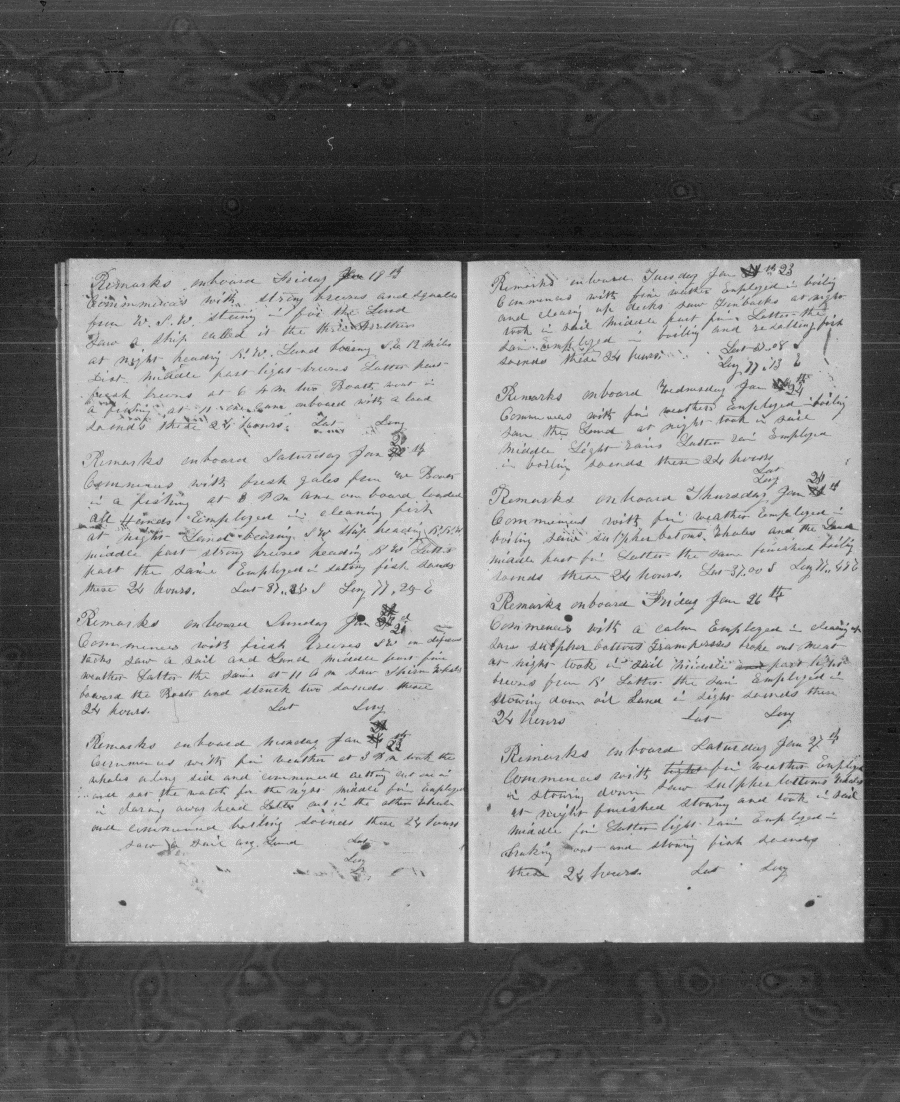 Remarks onboard Friday Jan 19th
Commences with strong breeses and squalls
from W. S. W. steering in for the Land
Saw a ship called it the three Brothers
at night heading N.W. Land bearing S.E. 12 miles
dist. middle part light breeses Latter part
fresh breeses at 6 A m two Boats went in
a fishing at 11 came onboard with a load
so ends these 24 hours. Lat Long
Remarks onboard Saturday Jan 20 th
Commences with fresh gales from Boats
in a fishing at 3 P m came on board loaded
all Hands Employed in cleaning fish
at night Land bearing S W Ship heading
middle part strong breeses heading N W Latter
part the same Employed in salting fish so ends
these 24 hours. Lat 37.. S Long 77.. E
Remarks onboard Sunday Jan 21 st
Commences with fresh breeses SW on different
tacks saw a sail and Land middle part fine
weather Latter the same at 11 A m saw Sperm Whales
lowerd the Boats and struck two so ends these
24 hours. Lat Long
Remarks onboard Monday Jan 22
Commences with fine weather at 3 P m took the
whales along side and commenced cutting one in
and set the watch for the night middle fine employed
in clearing away head Latter cut in the other whale
and commenced boiling so ends these 24 hours
saw a sail and Land Lat
Long
Remarks onboard Tuesday Jan 23
Commences with fine wether Employed in boiling
and clearing up decks saw Finbacks at night
took in sail middle part fine Latter the
same Employed in boiling and resalting fish
so ends these 24 hours Lat 37..08 S
Long 77..13 E
Remarks onboard Wednesday Jan 24 th
Commences with fine weather Employed in boiling
saw the Land at night took in sail
middle Light rain Latter rain Employed
in boiling so ends these 24 hours
Lat
Long
Remarks onboard Thursday Jan 25 th
Commences with fine weather Employed in
boiling saw sulpher botoms Whales and the Land
middle part fine Latter the same finished boiling
so ends these 24 hours. Lat 37..00 S Long 77..48 E
Remarks onboard Friday Jan 26 th
Commences with a calm Employed in clearing up
saw sulpher bottoms Grampusses broke out meat
at night took in sail middle part light
breeses from N Latter the same Employed in
stowing down oil Land in sight so ends these
24 hours Lat Long
Remarks onboard Saturday Jan 27 th
Commences with light fine weather Employed
in stowing down saw sulpher bottoms Whales
at night finished stowing and took in sail
middle fine Latter light rain Employed in
braking out and stowing fish so ends
these 24 hours. Lat Long